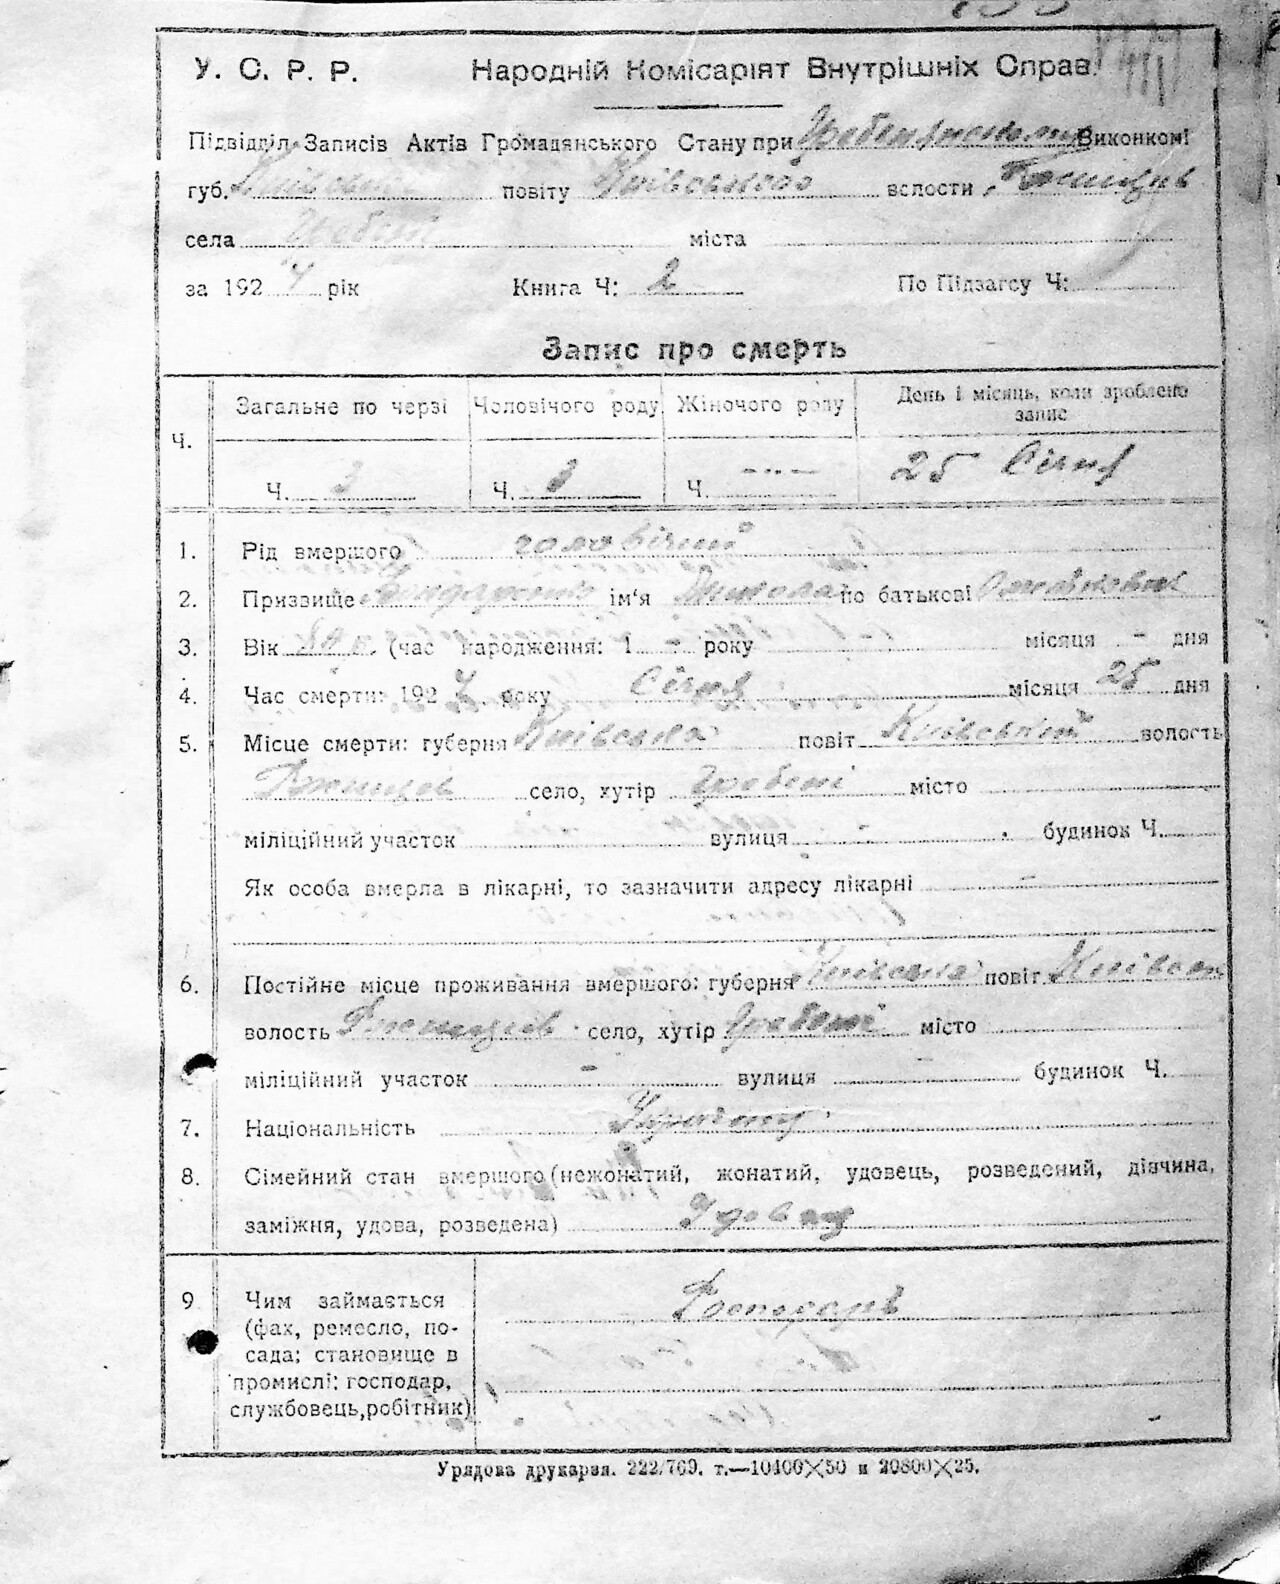 У. С. Р. Р. Народній Комісаріят Внутрішніх Справ.
Підвідділ Записів Актів Громадянського Стану при Виконкомі
губ. Київської повіту Київського волости
села Гребені міста
за 1924 рік Книга Ч: 2 По Підзагсу Ч:
Запис про смерть
Ч. Загальне по черзі Чоловічого роду Жіночого роду День і місяць, коли зроблено запис
Ч. 3 Ч. 3 Ч. 25 Січня
1. Рід вмершого чоловічий
2. Призвище Бондаренко ім'я Микола по батькові
3. Вік (час народження: 1 - року місяця - дня
4. Час смерти: 1924 року Січня місяця 25 дня
5. Місце смерти: губерня Київська повіт Київський волость
Ржищев село, хутір Гребені місто
міліційний участок вулиця - будинок Ч.
Як особа вмерла в лікарні, то зазначити адресу лікарні -
6. Постійне місце проживання вмершого: губерня Київська повіт Київськ
волость Ржищев село, хутір Гребені місто
міліційний участок - вулиця - будинок Ч.
7. Національність Українець
8. Сімейний стан вмершого (нежонатий, жонатий, удовець, розведений, дівчина,
заміжня, удова, розведена) Удовец
9 Чим займається Господарь
(фах, ремесло, по-
сада; становище в
промислі: господар,
службовець, робітник)
Урядова друкарня. 222/769. т.—10400X50 и 20800X25.